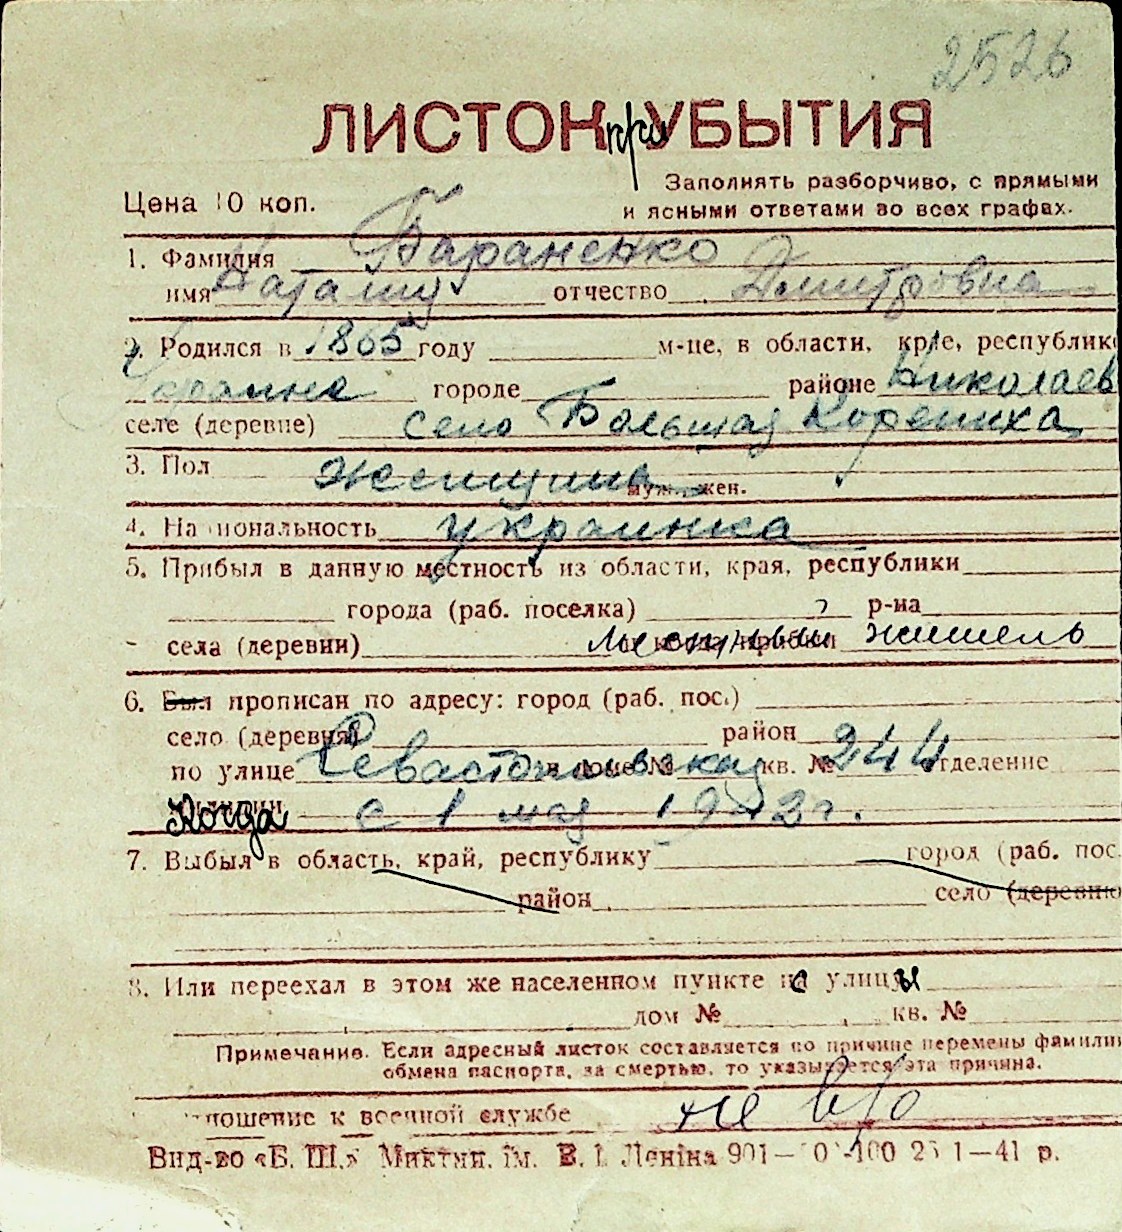 2526
ЛИСТОК при УБЫТИЯ
Заполнять разборчиво, с прямыми
Цена 10 коп.
и ясными ответами во всех графах.
1. Фамилия Бараненко
имя Наталия отчество Дмитровна
2. Родился в 1865 году м-це, в области, крае, республике
Украина городе районе Николаев
селе (деревне) село Большая Корениха
3. Пол женщина муж., жен.
4. Национальность украинка
5. Прибыл в данную местность из области, края, республики
города (раб. поселка) р-на
села (деревни) местный житель
6. Был прописан по адресу: город (раб. пос.)
село (деревня) район
по улице Севастопольская в доме № кв. № 244 отделение
Когда с 1 мая 1943 г.
7. Выбыл в область, край, республику город (раб. пос.
район село (деревню
8. Или переехал в этом же населенном пункте с улицы
дом № кв. №
Примечание. Если адресный листок составляется по причине перемены фамилии
обмена паспорта, за смертью, то указывается эта причина.
ношение к военной службе не в/о
Вид-во «Б. Ш.» Миктип. ім. В. І. Леніна 901— 100 25 1—41 р.